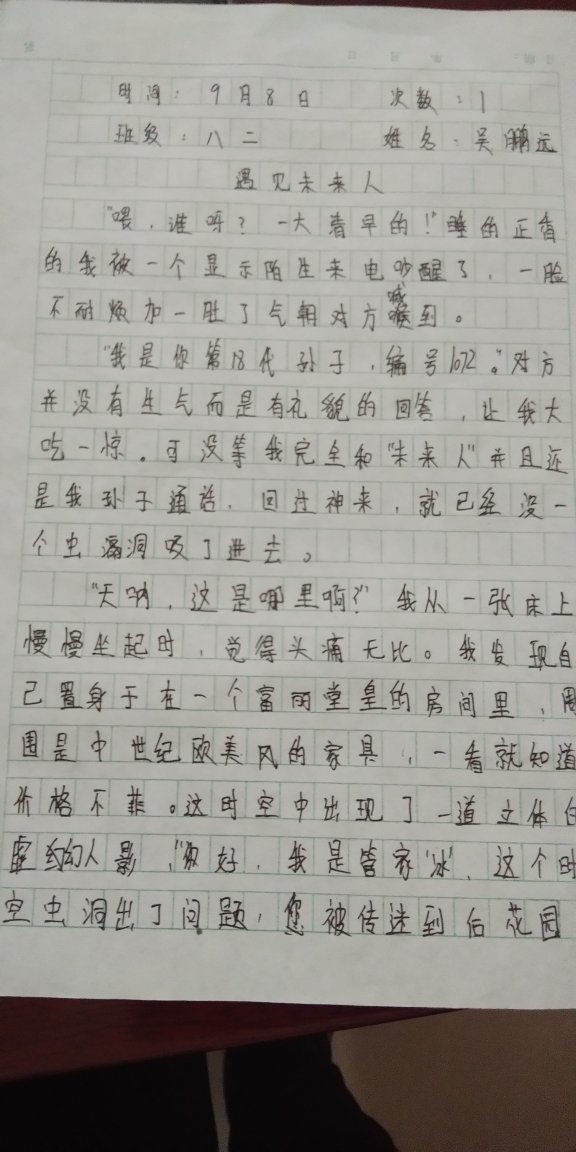 时间：9月8日 次数：1
班级：八二 姓名：吴鹏远
遇见未来人
"喂，谁呀？一大着早的！"睡的正香
的我被一个显示陌生来电吵醒了，一脸
不耐烦加一肚了气朝对方喊到。
"我是你第18代孙子，编号1072。"对方
并没有生气而是有礼貌的回答，让我大
吃一惊。可没等我完全和"未来人"并且还
是我孙子通话，回过神来，就已经没一
个虫漏洞吸了进去。
"天呐，这是哪里啊？"我从一张床上
慢慢坐起时，觉得头痛无比。我发现自
己置身于在一个富丽堂皇的房间里，周
围是中世纪欧美风的家具，一看就知道
价格不菲。这时空中出现了一道立体的
虚幻人影，"你好，我是管家'冰'，这个时
空虫洞出了问题，您被传送到后花园